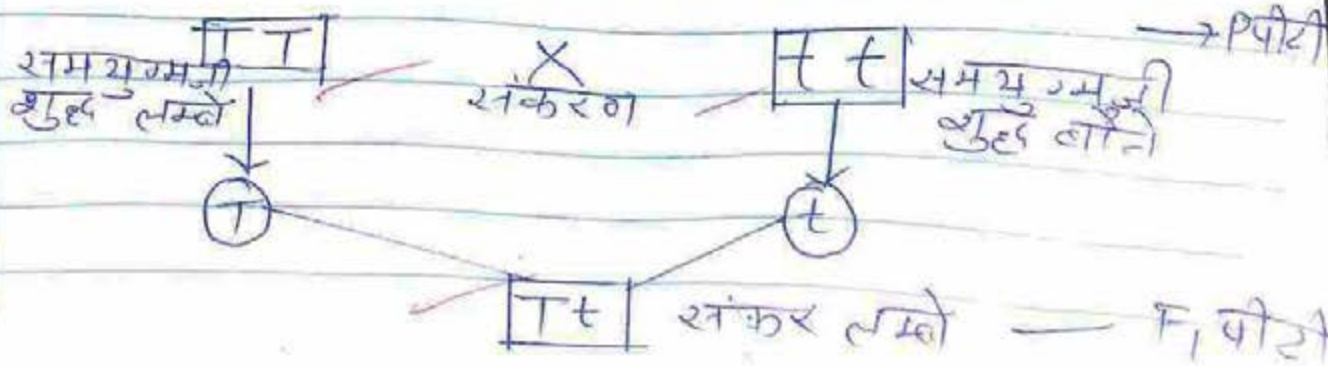 TT X tt → P पीढी
समयुग्मजी शुद्ध लम्बे संकरण समयुग्मजी शुद्ध बौने
T t
Tt संकर लम्बे — F₁ पीढी